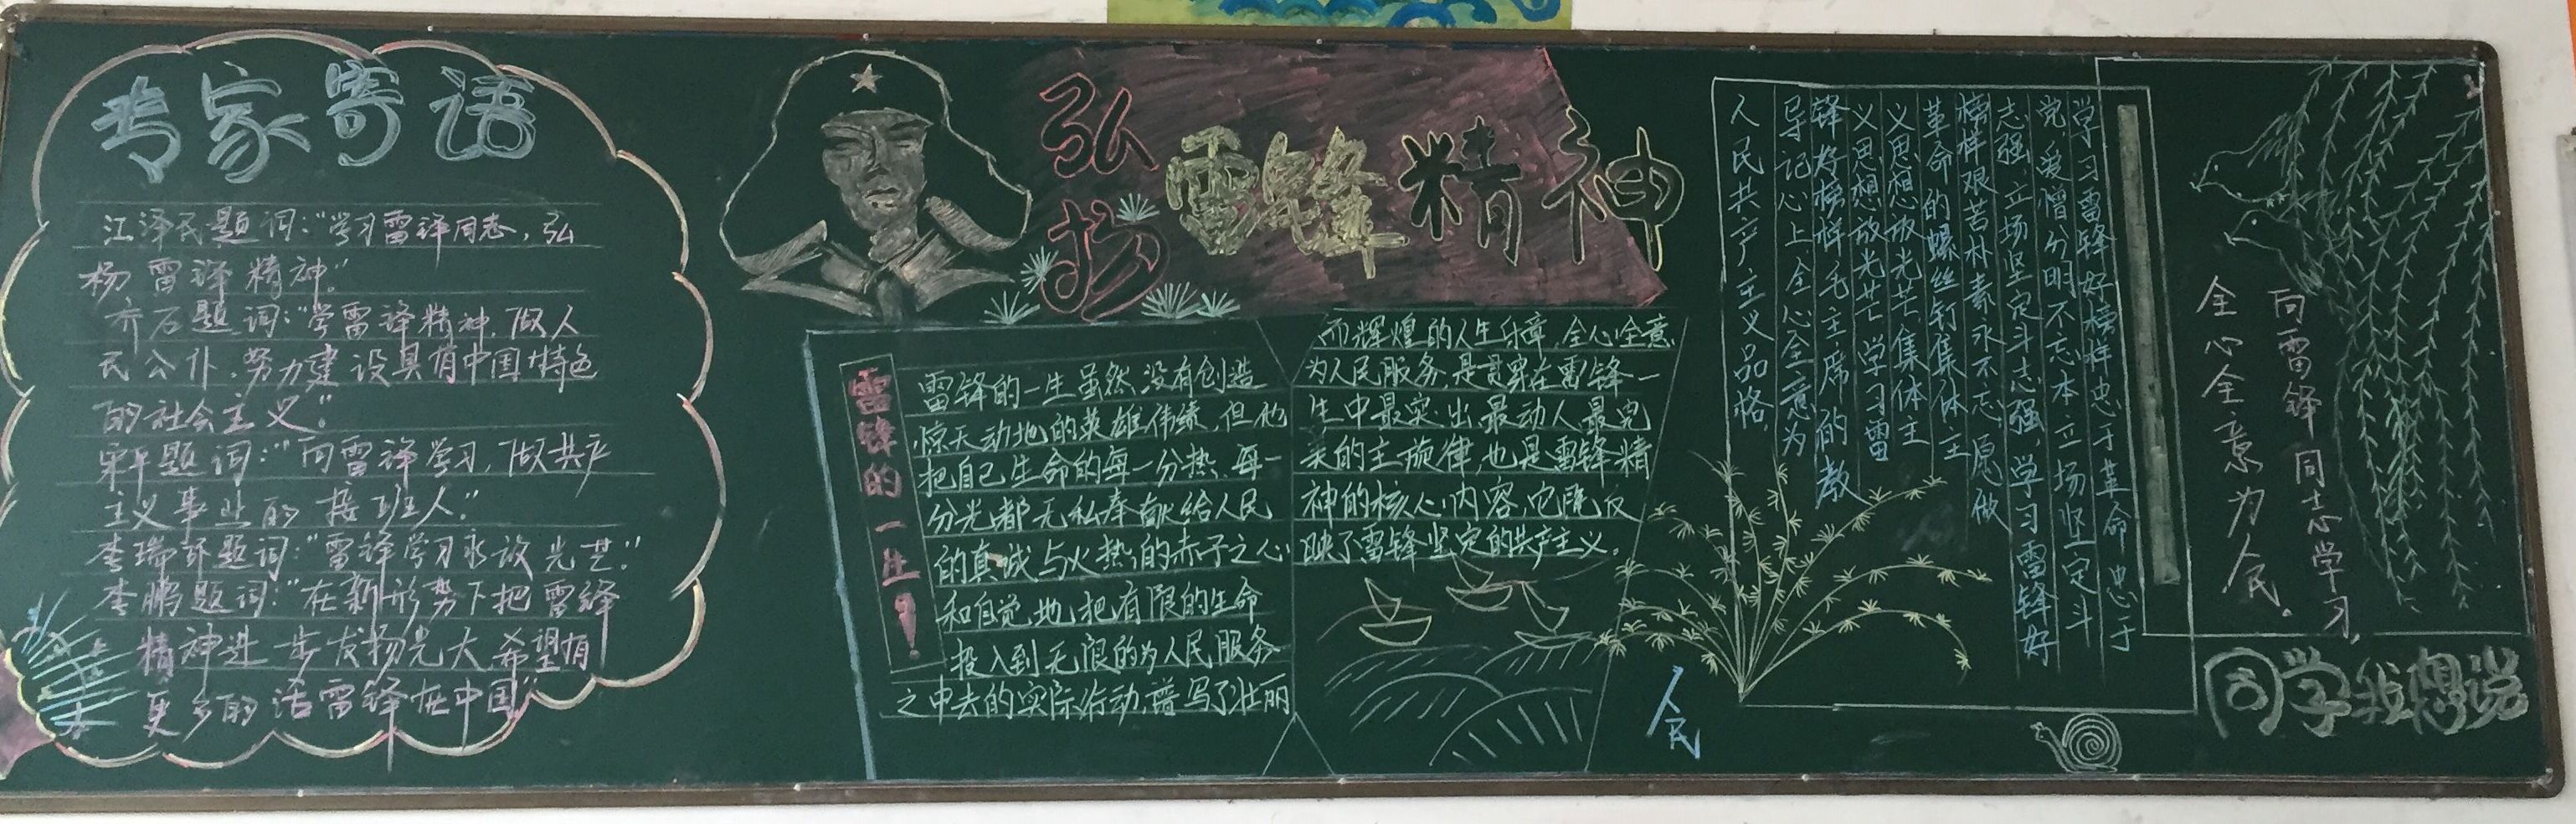 专家寄语
江泽民题词：“学习雷锋同志，弘
杨雷锋精神。”
乔石题词：“学雷锋精神，做人
民公仆，努力建设具有中国特色
的社会主义。”
宋平题词：“向雷锋学习，做共产
主义事业的接班人。”
李瑞环题词：“雷锋学习永放光芒。”
李鹏题词：“在新形势下把雷锋
精神进一步发扬光大，希望有
更多的活雷锋在中国”
弘扬
雷锋精神
雷锋的一生！
雷锋的一生虽然没有创造
惊天动地的英雄伟绩，但他
把自己生命的每一分热、每一
分光都无私奉献给人民
的真诚与火热的赤子之心
和自觉地把有限的生命
投入到无限的为人民服务
之中去的实际行动，谱写了壮丽
而辉煌的人生乐章，全心全意
为人民服务，是贯穿在雷锋一
生中最突出、最动人、最完
美的主旋律，也是雷锋精
神的核心内容，它既反
映了雷锋坚定的共产主义。
学习雷锋好榜样忠于革命忠于
党爱憎分明不忘本立场坚定斗
志强立场坚定斗志强，学习雷锋好
榜样艰苦朴素永不忘愿做
革命的螺丝钉集体主
义思想放光芒集体主
义思想放光芒学习雷
锋好榜样毛主席的教
导记心上全心全意为
人民共产主义品格，
人民
向雷锋同志学习，
全心全意为人民。
同学我想说